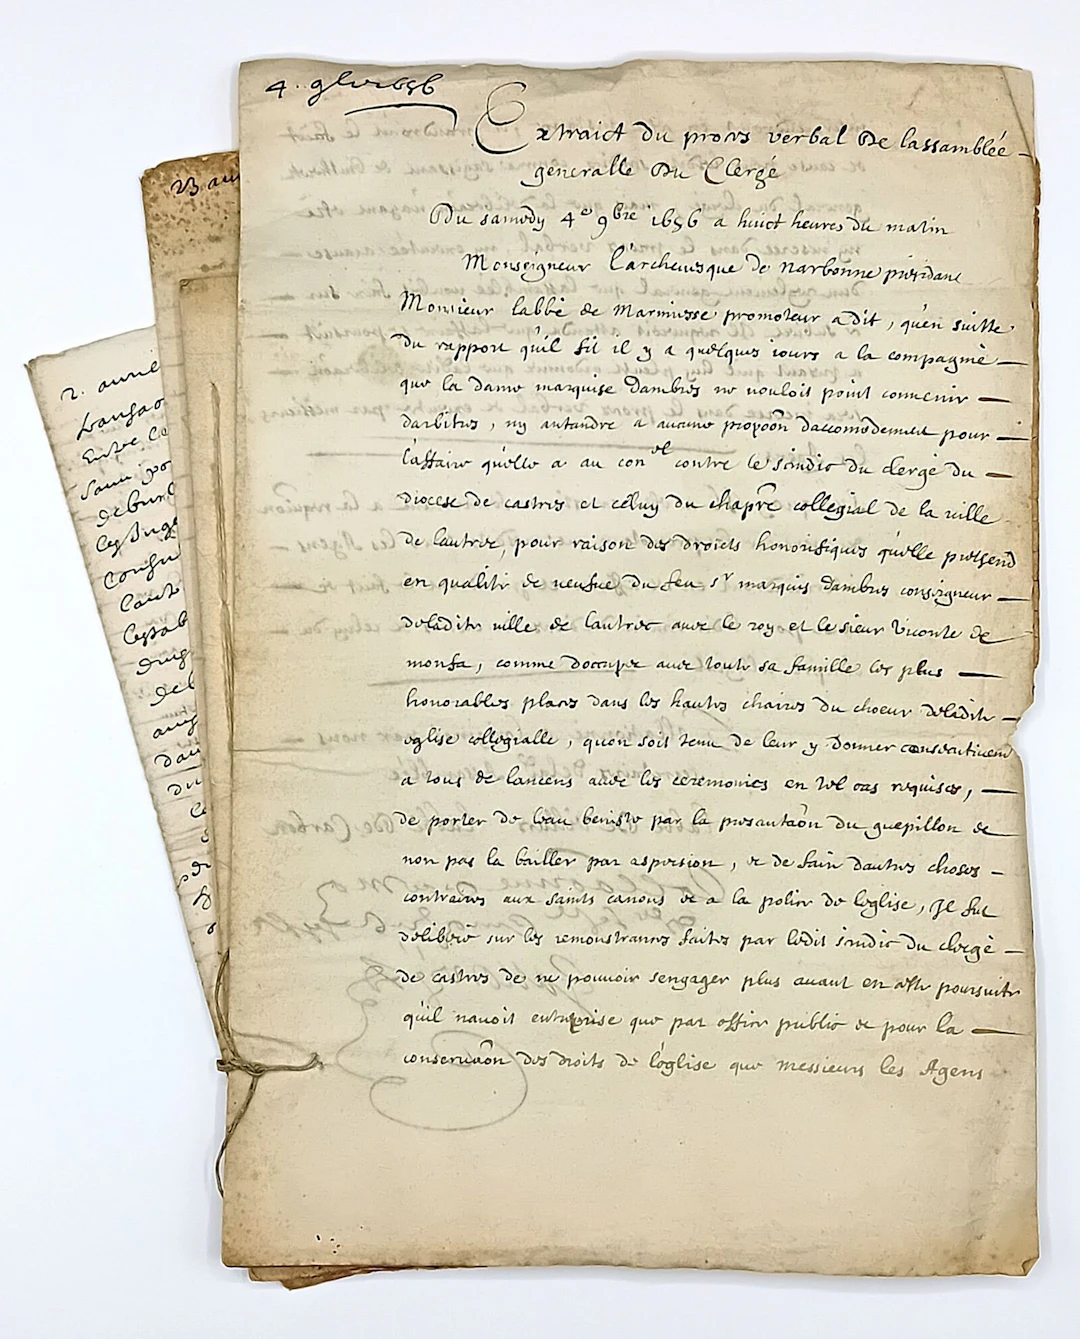 4. 9bre 1656
Extraict du proces verbal de lassamblée
generalle du Clergé
Du samedy 4e 9bre 1656 a huict heures du matin
Monseigneur l'archevesque de narbonne presidant
Monsieur labbé de Marmiesse promoteur a dit, qu'en suitte
du rapport qu'il fit il y a quelques iours a la compagnie
que la dame marquise dambres ne vouloit point convenir
darbitres, ny antandre a aucune propoõn daccomodement pour
l'affaire qu'elle a au conel contre le scindic du clergé du
diocese de castres et celuy du chapre collegial de la ville
de lautrec, pour raison des droicts honorifiques qu'elle pretend
en qualité de veufve du feu sr marquis dambres conseigneur
deladite ville de lautrec avec le roy et le sieur viconte de
monfa, comme d'occuper avec toute sa famille les plus
honorables places dans les hautes chaires du choeur deladite
eglise collegialle, quon soit tenu de leur y donner consecutivemt
a tous de lancens avec les ceremonies en tel cas requises,
de porter de leau beniste par la presantaõn du guepillon et
non pas la bailler par aspersion, et de faire dautres choses
contraires aux saints canons et a la police de leglise, Il fut
deliberé sur les remonstrances faites par ledit scindic du clergé
de castres de ne pouvoir s'engager plus avant en cette poursuite
qu'il n'avoit entreprise que par office public et pour la
conservaõn des droits de l'eglise que messieurs les Agens
23
2. avril
Entre